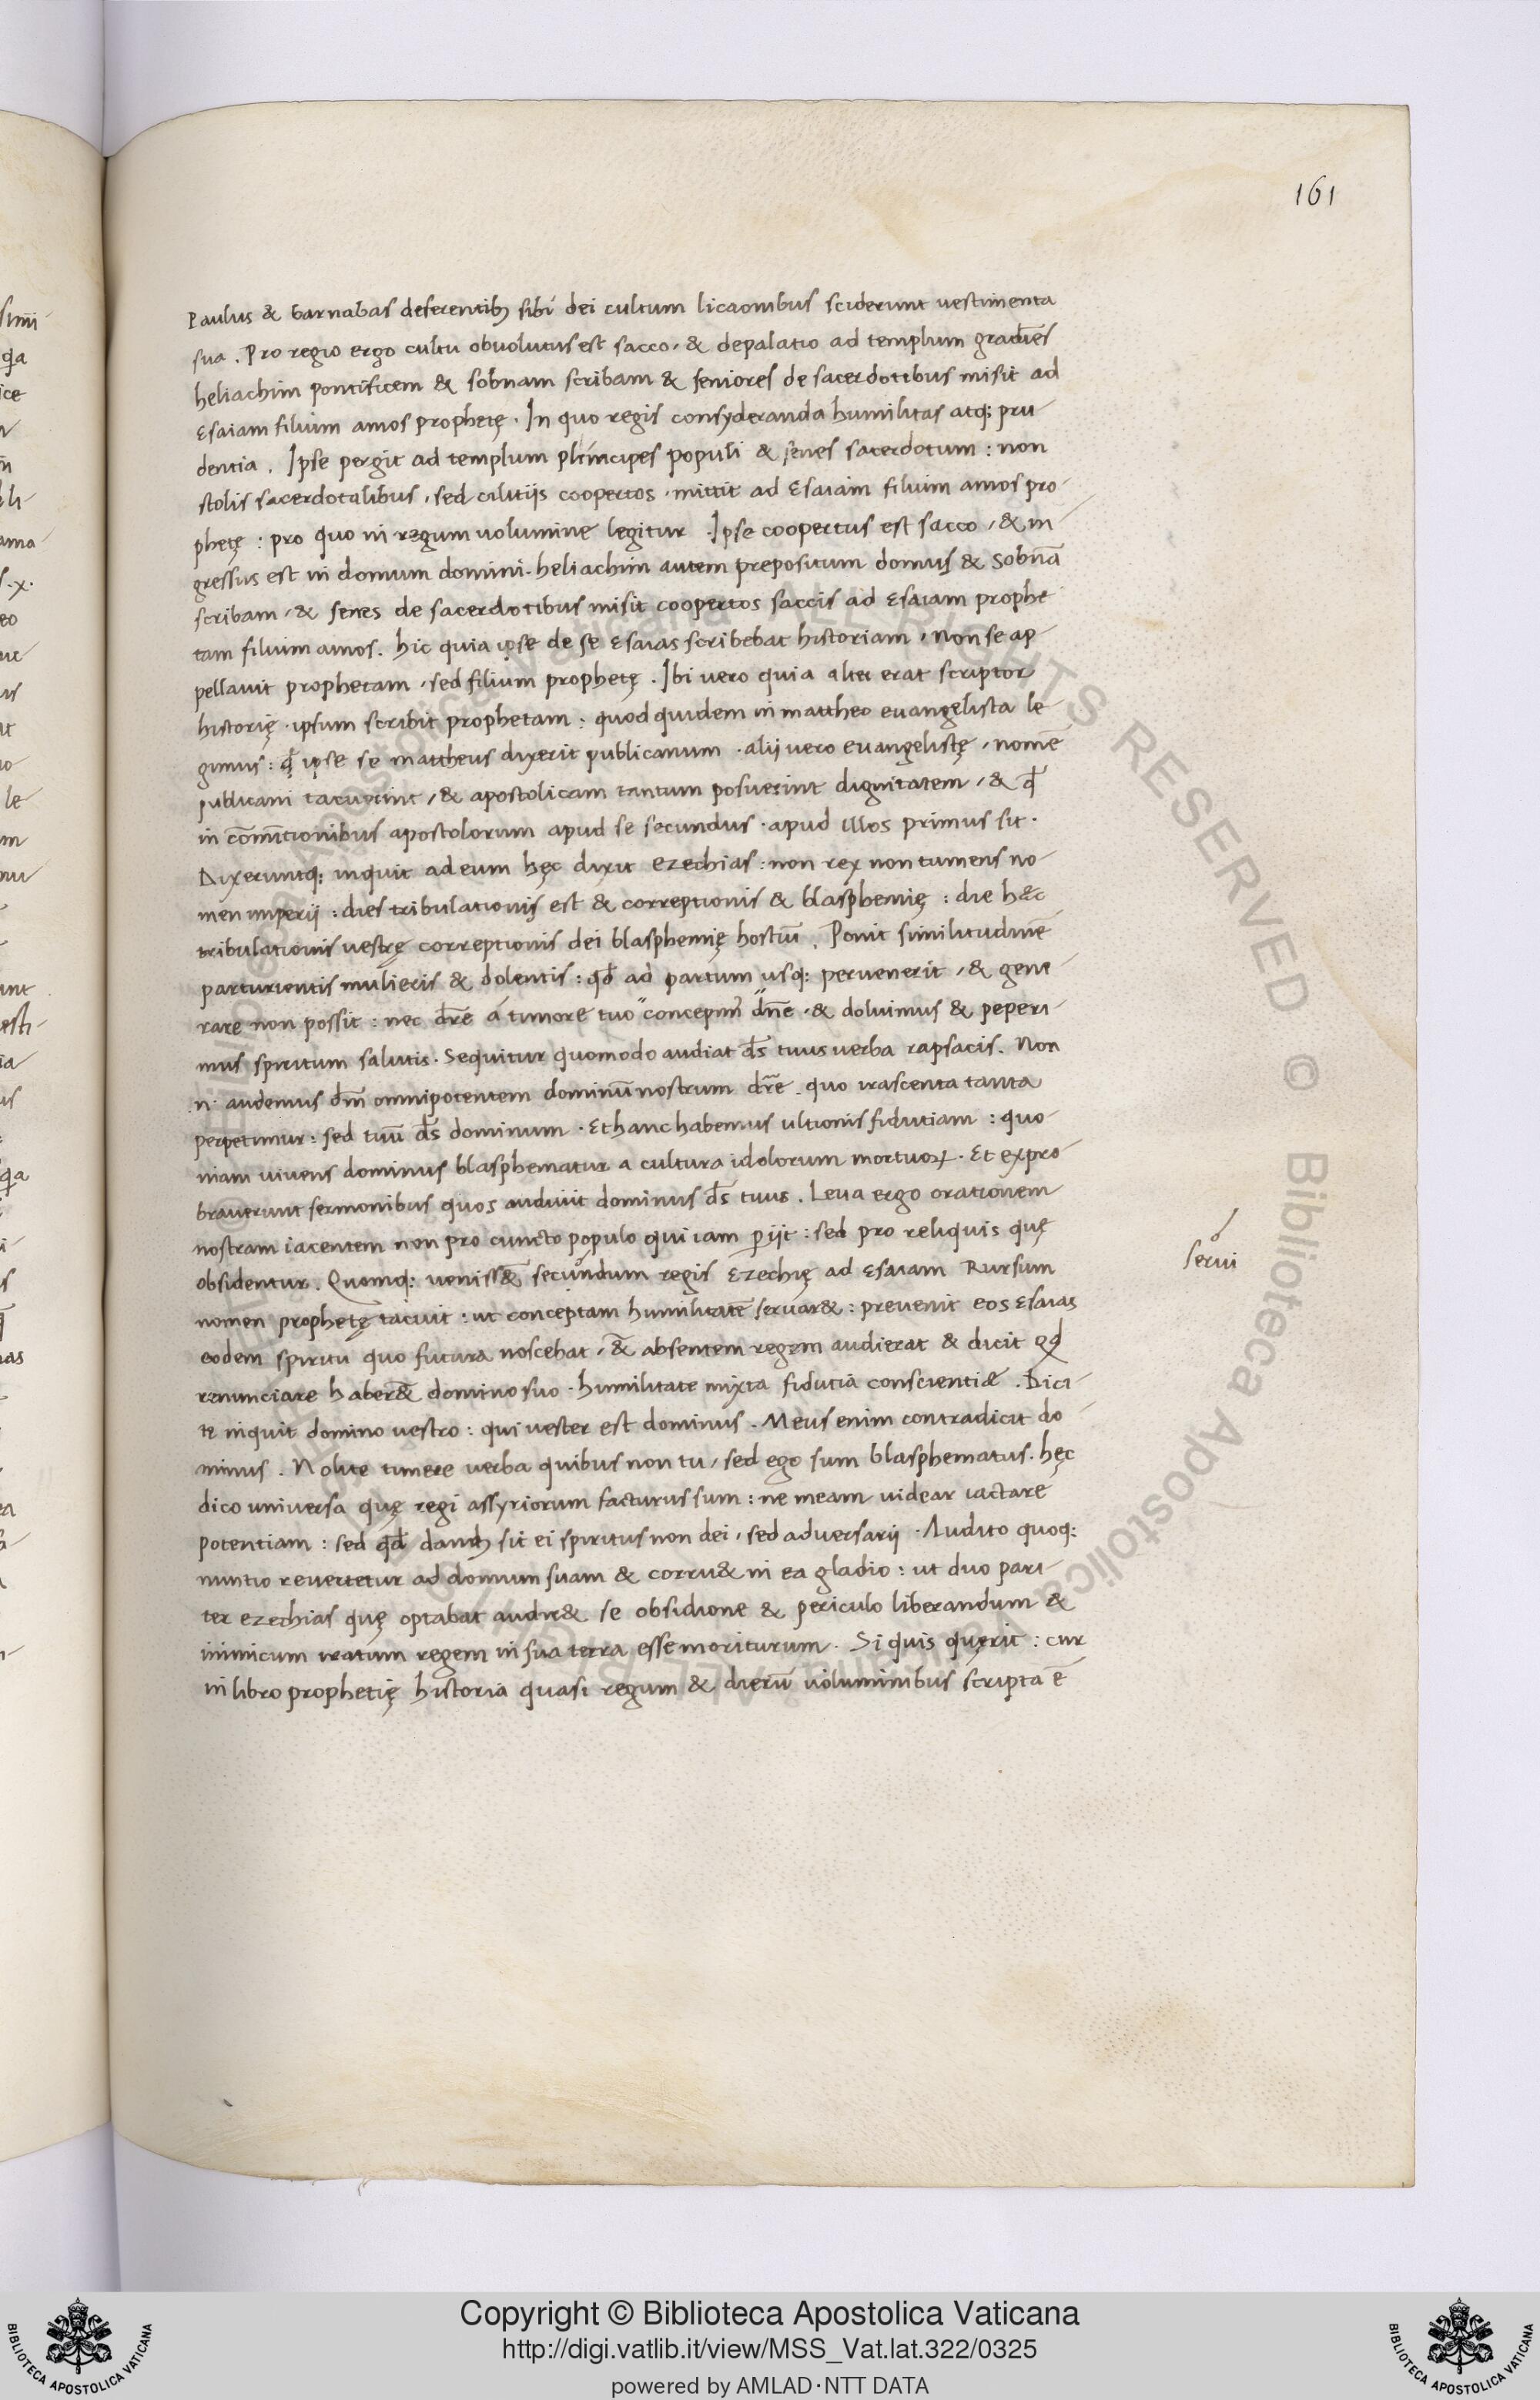 161
Paulus & barnabas deferentibꝫ sibi dei cultum licaonibus sciderunt uestimenta
sua. Pro regio ergo cultu obuolutus est sacco, & depalatio ad templum gradiēs
heliachim pontificem & sobnam scribam & seniores de sacerdotibus misit ad
Esaiam filium amos prophetę. In quo regis consyderanda humilitas atq; pru
dentia. Ipse pergit ad templum principes populi & senes sacerdotum: non
stolis sacerdotalibus, sed cilitijs coopertos, mittit ad Esaiam filium amos pro
phetę: pro quo in regum uolumine legitur. Ipse coopertus est sacco, & in
gressus est in domum domini. heliachim autem prepositum domus & Sobnā
scribam, & senes de sacerdotibus misit coopertos saccis ad Esaiam prophe
tam filium amos. hic quia ipse de se Esaias scribebat historiam, non se ap
pellauit prophetam, sed filium prophetę. Ibi uero quia alter erat scriptor
historię, ipsum scribit prophetam: quod quidem in mattheo euangelista le
gimus: qđ ipse se mattheus dixerit publicanum. alij uero euangelistę, nomē
publicani tacuerint, & apostolicam tantum posuerint dignitatem, & qđ
in apostolorum apud se secundus. apud illos primus sit.
Dixeruntq; inquit ad eum hęc dixit ezechias: non rex non tumens no
men imperij: dies tribulationis est & correptionis & blasphemię: die hæc
tribulationis uestrę correptionis dei blasphemię hostiū. Ponit similitudinē
parturientis mulieris & dolentis: qđ ad partum usq; peruenerit, & gene
rare non possit: nec dr̄e á timore tuo concepim̄ dn̄e. & doluimus & peperi
mus spiritum salutis. Sequitur quomodo audiat ds̄ tuus uerba rapsacis. Non
n. audemus dm̄ omnipotentem dominū nostrum dr̄e. quo irascenta tanta
perpetimur: sed tuū ds̄ dominum. Et hanc habemus ultionis fidutiam: quo
niam uiuens dominus blasphematur a cultura idolorum mortuoꝝ. Et expro
brauerunt sermonibus quos audiuit dominus ds̄ tuus. Leua ergo orationem
nostram iacentem non pro cuncto populo qui iam ꝑijt: sed pro reliquis quę
obsidentur. Quomq; uenissēt secundum regis Ezechię ad Esaiam Rursum
serui
nomen prophetę tacuit: ut conceptam humilitatē seruar&: preuenit eos Esaias
eodem spiritu quo futura noscebat, & absentem regem audierat & dicit qđ
renunciare haberēt domino suo. humilitate mixta fidutia conscientiæ. Dici
te inquit domino uestro: qui uester est dominus. Meus enim contradicit do
minus. Nolite timere uerba quibus non tu, sed ego sum blasphematus. hęc
dico uniuersa quę regi assyriorum facturus sum: ne meam uidear iactare
potentiam: sed qđ dandꝫ sit ei spiritus non dei, sed aduersarij. Audito quoq;
nuntio reuertetur ad domum suam & corru& in ea gladio: ut duo pari
ter ezechias quę optabat audir& se obsidione & periculo liberandum &
inimicum iratum regem in sua terra esse moriturum. Si quis quęrit: cur
in libro prophetię historia quasi regum & dierū uoluminibus scripta ē
Copyright © Biblioteca Apostolica Vaticana
http://digi.vatlib.it/view/MSS_Vat.lat.322/0325
powered by AMLAD·NTT DATA